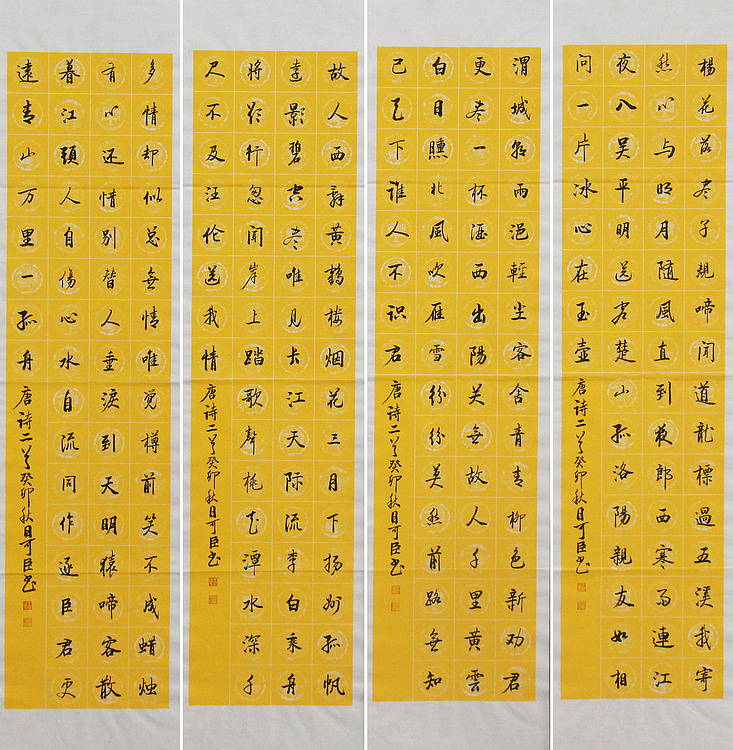 楊花落尽子規啼聞道龍標過五溪我寄
愁心与明月隨風直到夜郎西寒雨連江
夜入吴平明送客楚山孤洛陽親友如相
問一片冰心在玉壶
唐诗二首癸卯秋日可臣书
渭城朝雨浥輕尘客舍青青柳色新劝君
更尽一杯酒西出陽关無故人千里黄雲
白日曛北風吹雁雪纷纷莫愁前路無知
己天下谁人不识君
唐诗二首癸卯秋日可臣书
故人西辞黄鹤楼烟花三月下扬州孤帆
遠影碧空尽唯见长江天际流李白乘舟
将欲行忽闻岸上踏歌聲桃花潭水深千
尺不及汪伦送我情
唐诗二首癸卯秋日可臣书
多情却似总無情唯觉樽前笑不成蜡烛
有心还惜别替人垂淚到天明猿啼客散
暮江頭人自傷心水自流同作逐臣君更
遠青山万里一孤舟
唐诗二首癸卯秋日可臣书